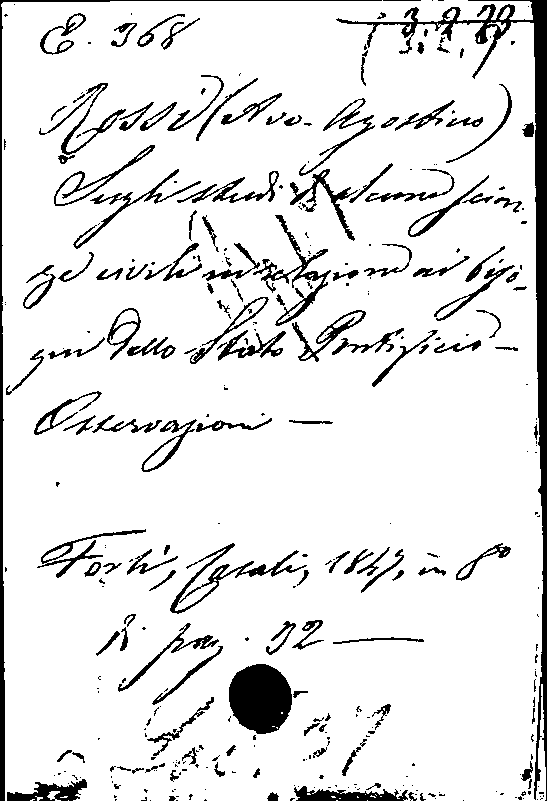 E. 368
3. 2. 23
Rossi (Avv. Agostino)
Sugli studi di alcune scien-
ze civili in relazione ai biso-
gni dello Stato Pontificio -
Osservazioni —
Forlì, Casali, 1847, in 8°
di pag. 32 —
37